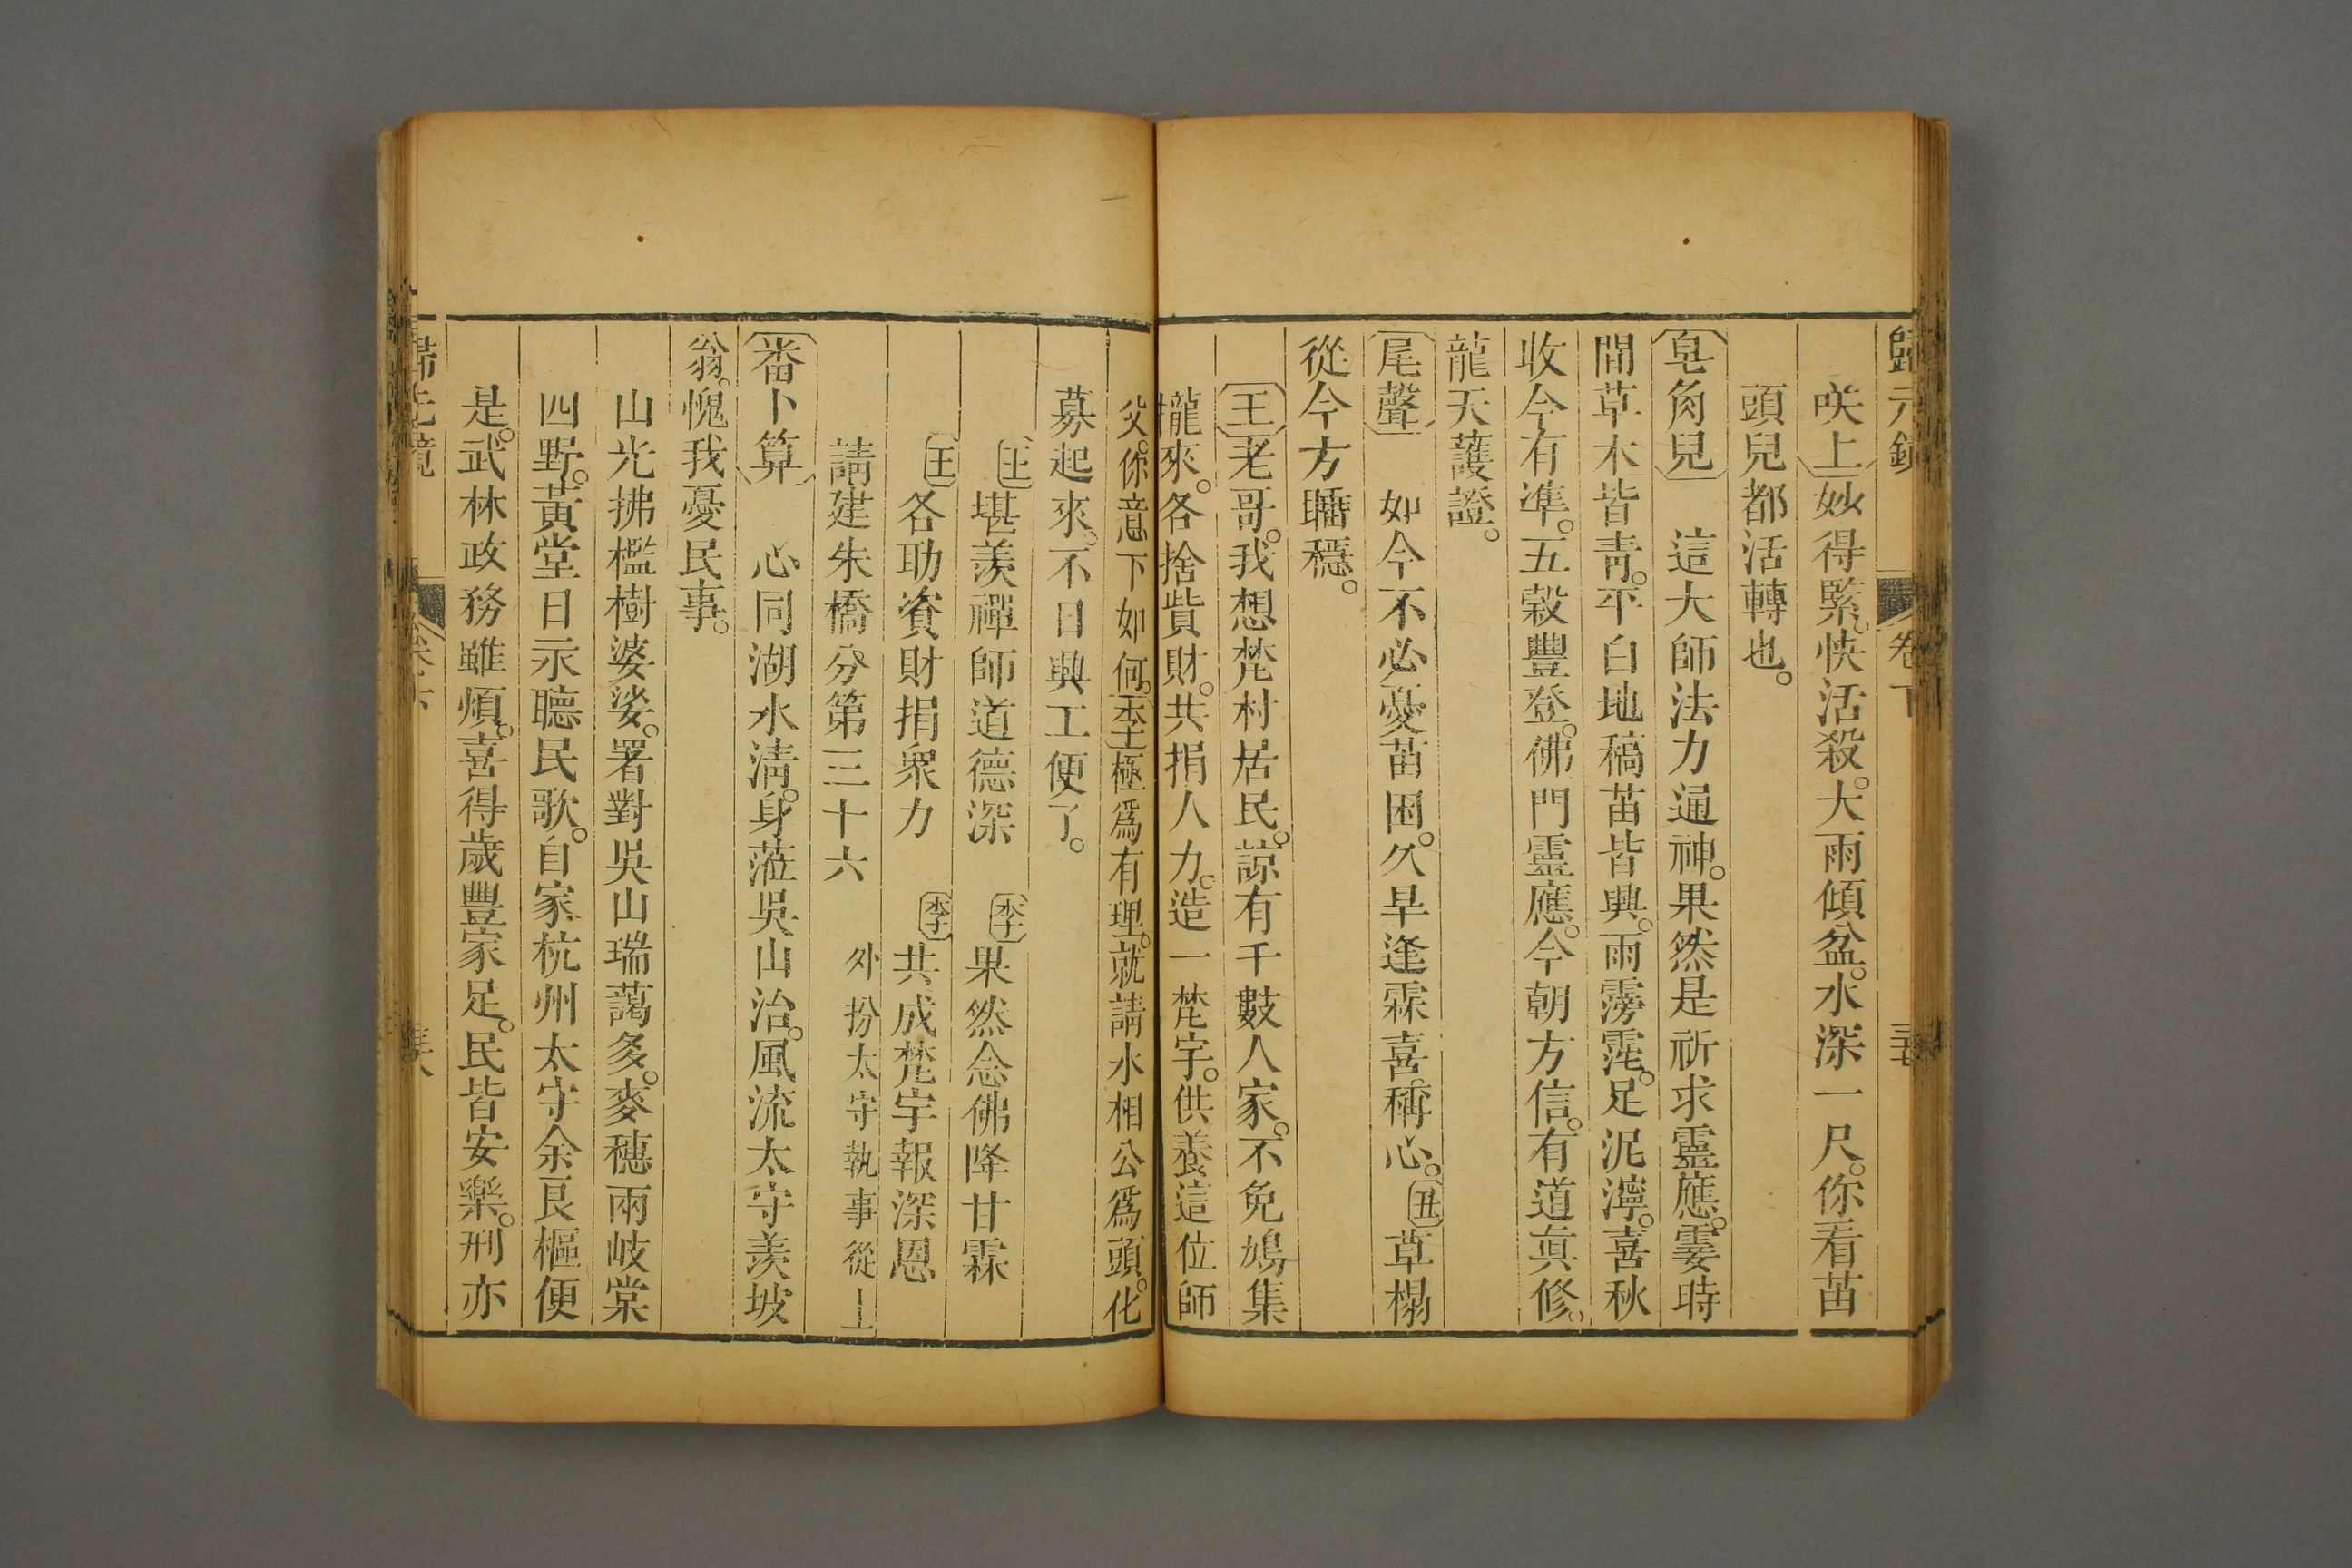 歸元鏡 卷下
咲上妙得緊。快活殺。大雨傾盆。水深一尺。你看苗
頭兒都活轉也。
皂角兒 這大師法力通神。果然是祈求靈應。霎時
間草木皆青。平白地稿苗皆興。雨雱霓。足泥濘。喜秋
收今有準。五穀豐登。佛門靈應。今朝方信。有道眞修。
龍天護證。
尾聲 如今不必憂苗困。久旱逢霖喜稱心。丑草榻
從今方睡穩。
王老哥。我想梵村居民。諒有千數人家。不免鳩集
攏來。各捨貲財。共捐人力。造一梵宇。供養這位師
父。你意下如何。李極爲有理。就請水相公爲頭。化
募起來。不日興工便了。
王堪羨禪師道德深 李果然念佛降甘霖
王各助資財捐衆力 李共成梵宇報深恩
請建朱橋分第三十六 外扮太守執事從上
番卜算 心同湖水清。身蒞吳山治。風流太守羨坡
翁。愧我憂民事。
山光拂檻樹婆娑。署對吳山瑞藹多。麥穗兩岐棠
四野。黃堂日示聽民歌。自家杭州太守余良樞便
是。武林政務雖煩。喜得歲豐家足。民皆安樂。刑亦